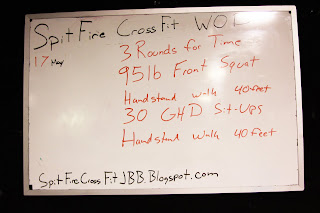 SpitFire CrossFit WOD
17 May
3 Rounds for Time
95lb Front Squat
Handstand walk 40 feet
30 GHD Sit-Ups
Handstand Walk 40 feet
SpitFireCrossFitJBB.Blogspot.com